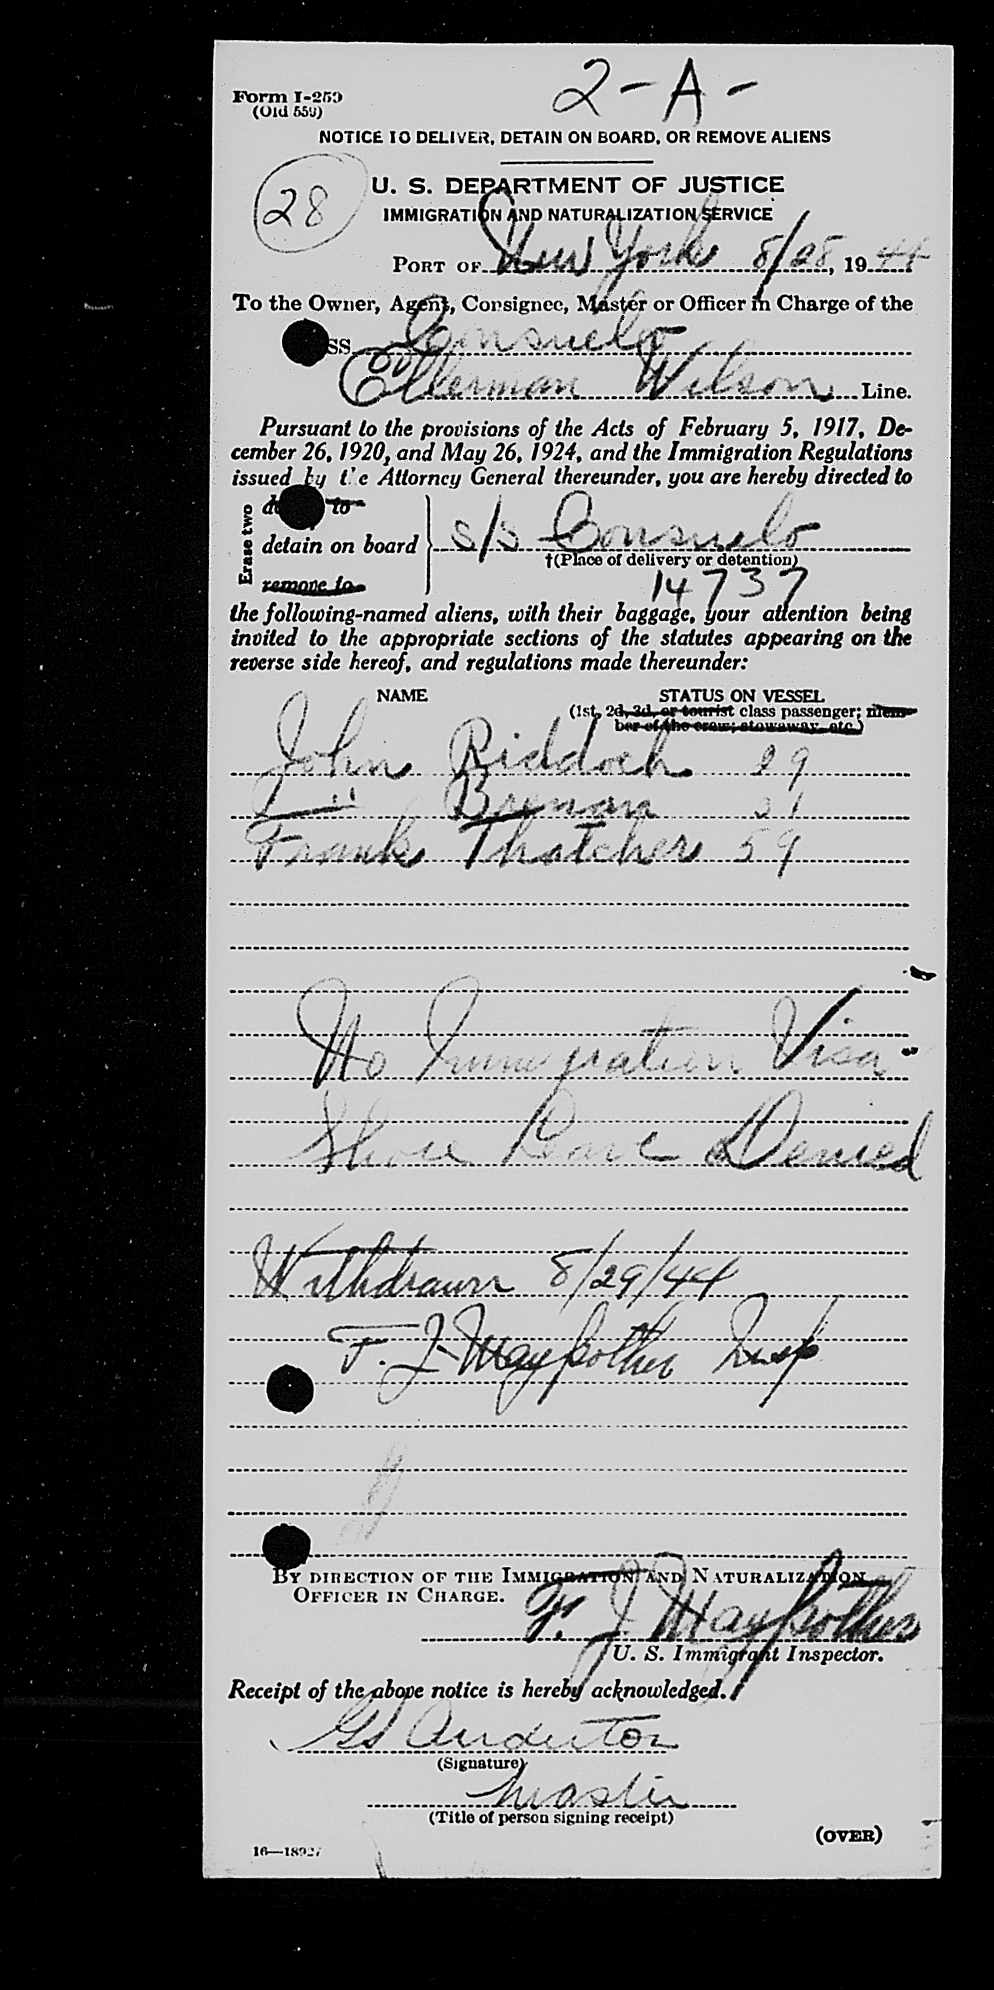 2-A-
Form I-259
(Old 559)
NOTICE TO DELIVER, DETAIN ON BOARD, OR REMOVE ALIENS
28
U. S. DEPARTMENT OF JUSTICE
IMMIGRATION AND NATURALIZATION SERVICE
PORT OF New York 8/28, 1944
To the Owner, Agent, Consignee, Master or Officer in Charge of the
SS Consuelo
Ellerman Wilson Line.
Pursuant to the provisions of the Acts of February 5, 1917, De-
cember 26, 1920, and May 26, 1924, and the Immigration Regulations
issued by the Attorney General thereunder, you are hereby directed to
Erase two
to
detain on board } s/s Consuelo
†(Place of delivery or detention)
remove to
14737
the following-named aliens, with their baggage, your attention being
invited to the appropriate sections of the statutes appearing on the
reverse side hereof, and regulations made thereunder:
NAME STATUS ON VESSEL
(1st, 2d, 3d, or tourist class passenger; mem-
ber of the crew; stowaway, etc.)
John Riddoch
" Brenan
Frank Thatcher 59
No Immigration Visa
Shore Leave Denied
Withdrawn 8/29/44
F. J. Maypother Insp
BY DIRECTION OF THE IMMIGRATION AND NATURALIZATION
OFFICER IN CHARGE.
F. J. Maypother
U. S. Immigrant Inspector.
Receipt of the above notice is hereby acknowledged.
Anderton
(Signature)
Master
(Title of person signing receipt)
(OVER)
16—18927